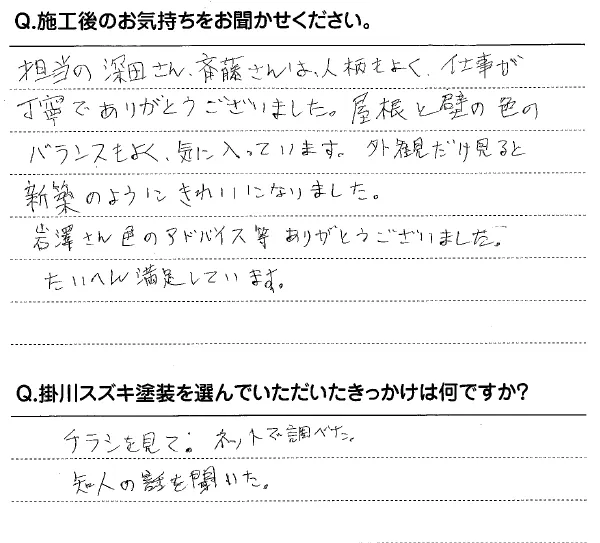 Q.施工後のお気持ちをお聞かせください。
担当の深田さん、斉藤さんは、人柄もよく、仕事が
丁寧でありがとうございました。屋根と壁の色の
バランスもよく、気に入っています。外観だけ見ると
新築のようにきれいになりました。
岩澤さん色のアドバイス等ありがとうございました。
たいへん満足しています。
Q.掛川スズキ塗装を選んでいただいたきっかけは何ですか?
チラシを見て。ネットで調べた。
知人の話を聞いた。